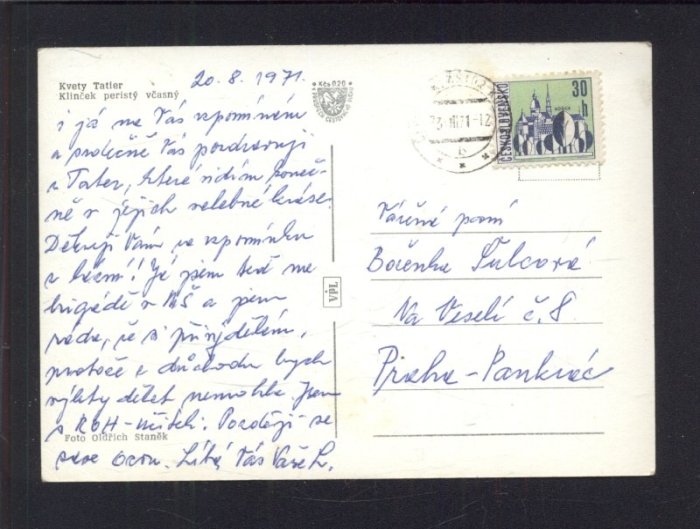 Kvety Tatier
Klinček peristý včasný
20. 8. 1971.
Kčs 0,20
i já na Vás vzpomínám
a srdečně Vás pozdravuji
z Tater, které vidím koneč-
ně v jejich velebné kráse.
Děkuji Vám za vzpomínku
z lázní! Já jsem teď na
brigádě v MŠ a jsem
ráda, že si přivydělám,
protože z důchodu bych
výlety dělat nemohla. Jsem
s ROH-učiteli. Později se
zase ozvu. Líbá Vás Vaše L.
Foto Oldřich Staněk
VPL
ČESKOSLOVENSKO
30
h
Vážená paní
Boženka Šulcová
Na Veselí č. 8
Praha-Pankrác